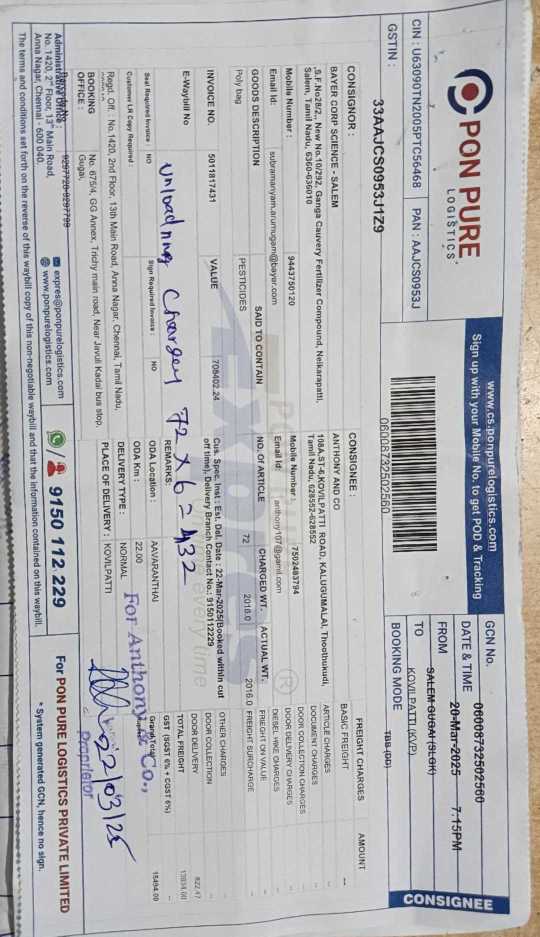 PON PURE
LOGISTICS
CIN : U63090TN2005PTC56468 PAN : AAJCS0953J
GSTIN : 33AAJCS0953J1Z9
www.cs.ponpurelogistics.com
Sign up with your Mobile No. to get POD & Tracking
06008732502560
GCN No. 06008732502560
DATE & TIME 20-Mar-2025 7:15PM
FROM SALEM GUGAI (SLGK)
TO KOVILPATTI (KVP)
BOOKING MODE TBB (DD)
CONSIGNEE
CONSIGNOR :
BAYER CORP SCIENCE - SALEM
,S.F.No28/2,, New No.10/292, Ganga Cauvery Fertilizer Compound, Neikarapatti,
Salem, Tamil Nadu, 6360-636010
Mobile Number : 9443750120
Email Id: subramanyam.arumugam@bayer.com
CONSIGNEE :
ANTHONY AND CO
108A,ST-6,KOVILPATTI ROAD, KALUGUMALAI, Thoothukudi,
Tamil Nadu, 628552-628552
Mobile Number : 7502463794
Email Id: anthony107@gamil.com
GOODS DESCRIPTION SAID TO CONTAIN NO. OF ARTICLE CHARGED WT. ACTUAL WT.
Poly bag PESTICIDES 72 2016.0 2016.0
FREIGHT CHARGES AMOUNT
BASIC FREIGHT --
ARTICLE CHARGES
DOCUMENT CHARGES
DOOR COLLECTION CHARGES
DOOR DELIVERY CHARGES
DIESEL HIKE CHARGES
FREIGHT ON VALUE
FREIGHT SURCHARGE
OTHER CHARGES
DOOR COLLECTION
DOOR DELIVERY 822.47
TOTAL FREIGHT 13834.00
GST (SGST 6% + CGST 6%) --
Grand Total 15494.00
INVOICE NO. 5011817431 VALUE 708402.24
E-Waybill No
Cus. Spec. Inst: Est. Del. Date : 22-Mar-2025(Booked within cut
off time), Delivery Branch Contact No.: 9150112229
REMARKS:
unloading Charges 72 x 6 = 432
Seal Required Invoice : NO Sign Required Invoice : NO
Customer LR Copy Required :
ODA Location : AAVARANTHAI
ODA Km : 22.00
DELIVERY TYPE : NORMAL
PLACE OF DELIVERY : KOVILPATTI
Regd. Off. : No.1420, 2nd Floor, 13th Main Road, Anna Nagar, Chennai, Tamil Nadu,
BOOKING OFFICE : No. 675/4, GG Annex, Trichy main road, Near Javuli Kadai bus stop,
Gugai,
9297720-9297799
For Anthony & Co.,
22/03/25
Proprietor
Administrative Office :
No. 1420, 2nd Floor, 13th Main Road,
Anna Nagar, Chennai - 600 040.
expres@ponpurelogistics.com
www.ponpurelogistics.com
9150 112 229
For PON PURE LOGISTICS PRIVATE LIMITED
* System generated GCN, hence no sign.
The terms and conditions set forth on the reverse of this waybill copy of this non-negotiable waybill and that the information contained on this waybill.